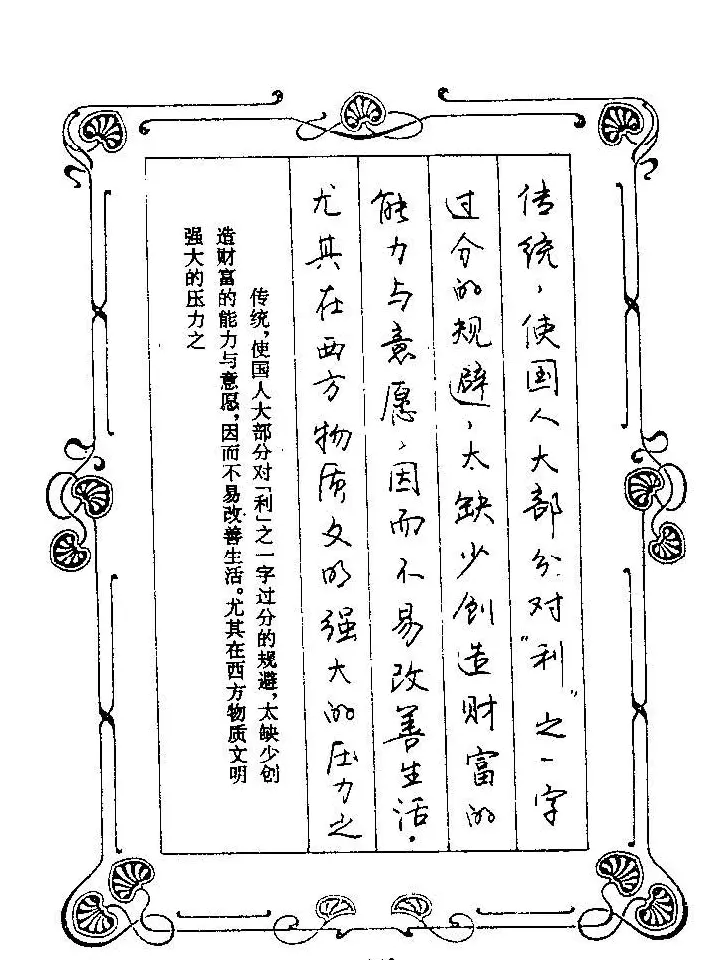 传统，使国人大部分对"利"之一字
过分的规避，太缺少创造财富的
能力与意愿，因而不易改善生活。
尤其在西方物质文明强大的压力之
传统，使国人大部分对「利」之一字过分的规避，太缺少创
造财富的能力与意愿，因而不易改善生活。尤其在西方物质文明
强大的压力之